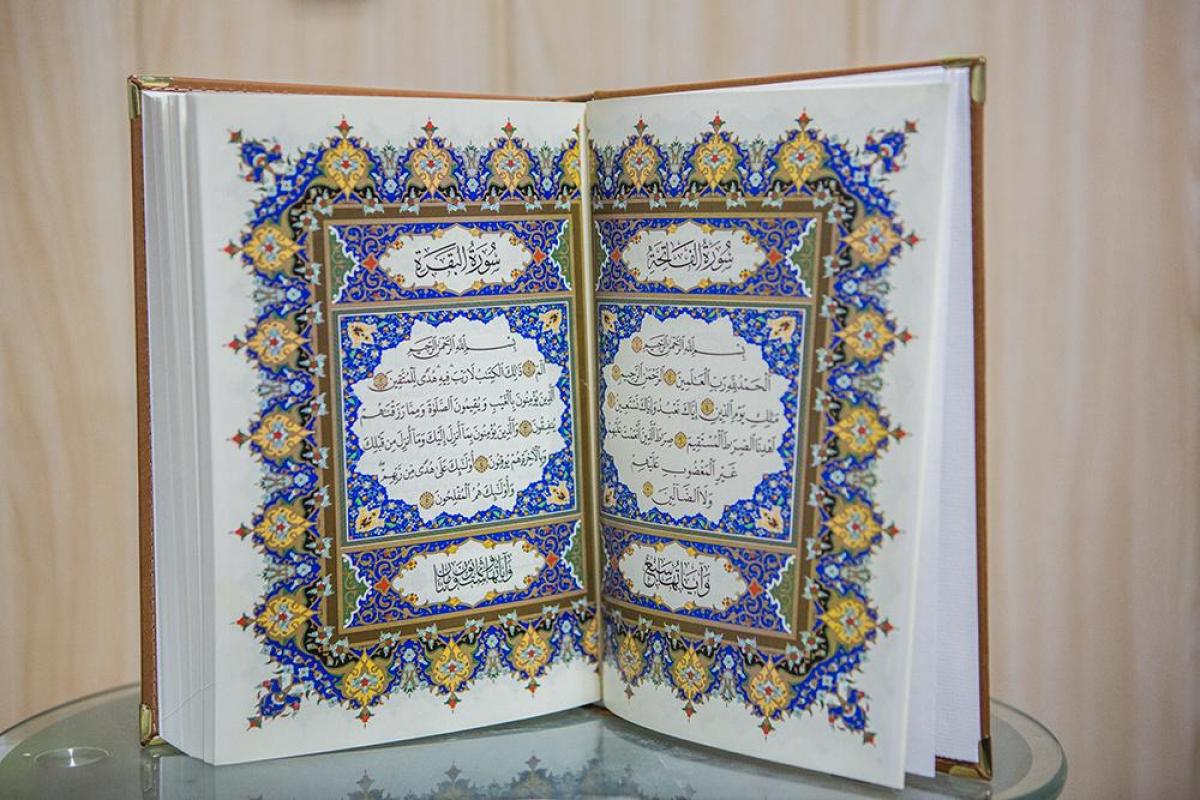 سُورَةُ الْفَاتِحَةِ
بِسْمِ اللَّهِ الرَّحْمَٰنِ الرَّحِيمِ ١
الْحَمْدُ لِلَّهِ رَبِّ الْعَٰلَمِينَ ٢ الرَّحْمَٰنِ الرَّحِيمِ ٣
مَٰلِكِ يَوْمِ الدِّينِ ٤ إِيَّاكَ نَعْبُدُ وَإِيَّاكَ نَسْتَعِينُ ٥
اهْدِنَا الصِّرَٰطَ الْمُسْتَقِيمَ ٦ صِرَٰطَ الَّذِينَ أَنْعَمْتَ عَلَيْهِمْ
غَيْرِ الْمَغْضُوبِ عَلَيْهِمْ
وَلَا الضَّآلِّينَ ٧
وَآيَاتُهَا سَبْعٌ
سُورَةُ الْبَقَرَةِ
بِسْمِ اللَّهِ الرَّحْمَٰنِ الرَّحِيمِ
الٓمٓ ١ ذَٰلِكَ الْكِتَٰبُ لَا رَيْبَ فِيهِ هُدًى لِّلْمُتَّقِينَ ٢
الَّذِينَ يُؤْمِنُونَ بِالْغَيْبِ وَيُقِيمُونَ الصَّلَوٰةَ وَمِمَّا رَزَقْنَٰهُمْ
يُنفِقُونَ ٣ وَالَّذِينَ يُؤْمِنُونَ بِمَآ أُنزِلَ إِلَيْكَ وَمَآ أُنزِلَ مِن قَبْلِكَ
وَبِالْآخِرَةِ هُمْ يُوقِنُونَ ٤ أُولَٰٓئِكَ عَلَىٰ هُدًى مِّن رَّبِّهِمْ
وَأُولَٰٓئِكَ هُمُ الْمُفْلِحُونَ ٥
وَآيَاتُهَا سِتٌّ وَثَمَانُونَ وَمِائَتَانِ